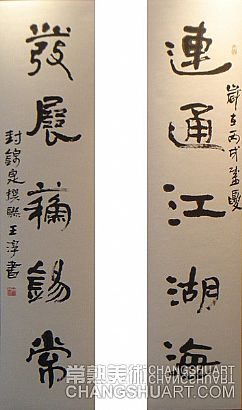 連通江湖海
歲在丙戌盛夏
發展蘇錫常
封錦泉撰聯王淳書
常熟美術 CHANGSHUART
CHANGSHUART.COM